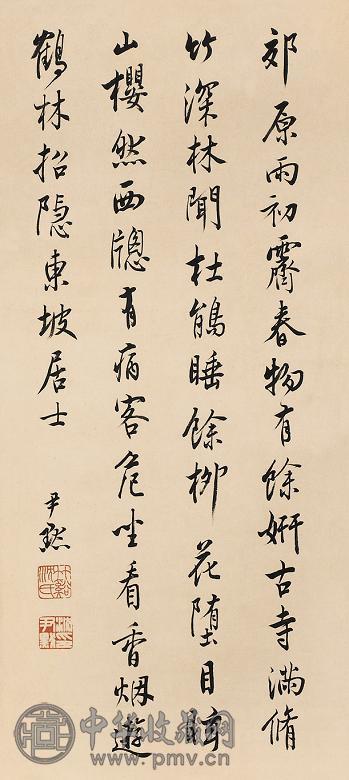 郊原雨初霽春物有餘妍古寺滿脩
竹深林聞杜鵑睡餘柳花墮目眩
山櫻然西牕有病客危坐看香烟遊
鶴林招隱東坡居士
尹默
竹谿沈氏
中華收藏網
www.pmv.cn